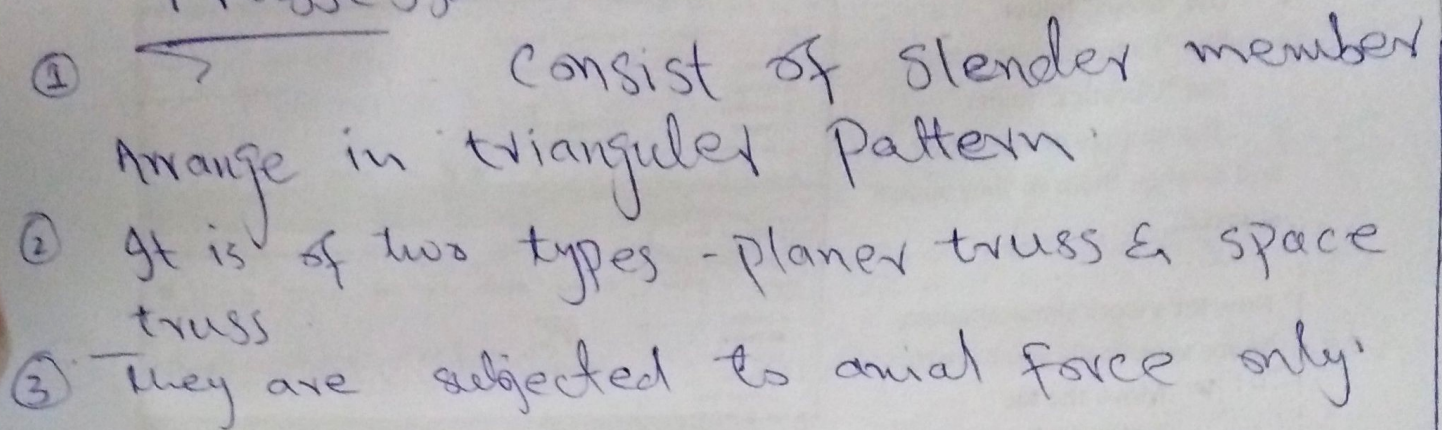 ① Consist of slender member
Arrange in trianguler Pattern.
② It is of two types - planer truss & space
truss
③ They are subjected to axial force only.